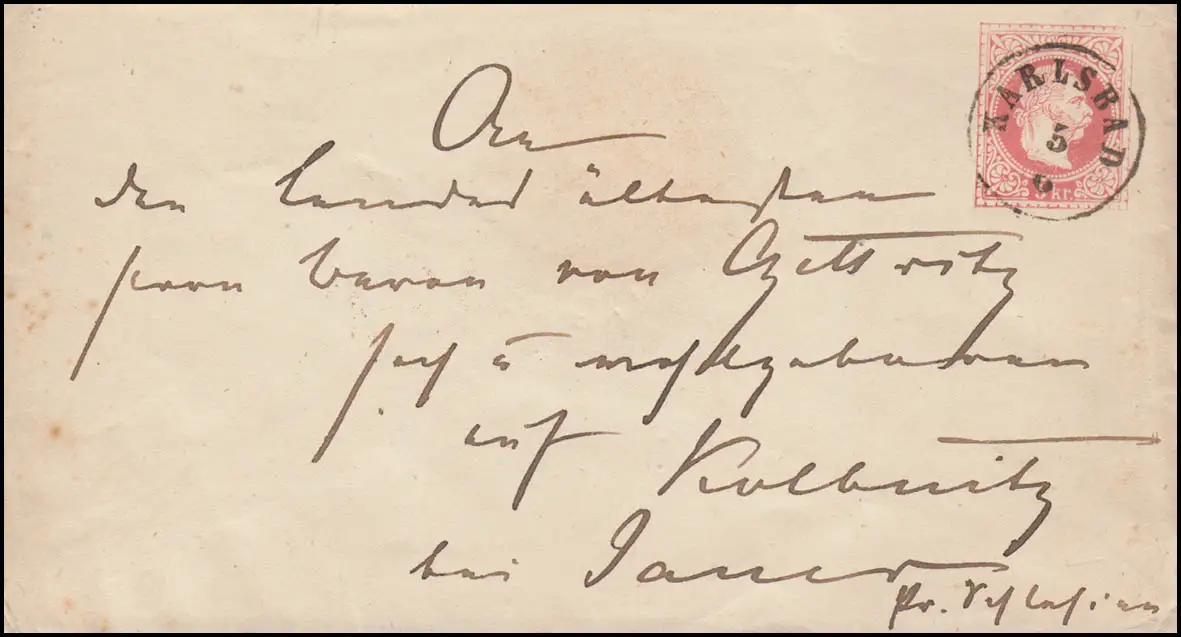 KARLSBAD
5
6
5 kr.
An
den Landesältesten
Herrn Baron von Czettritz
Hoch u wohlgeboren
auf Kolbnitz
bei Jauer
Pr. Schlesien